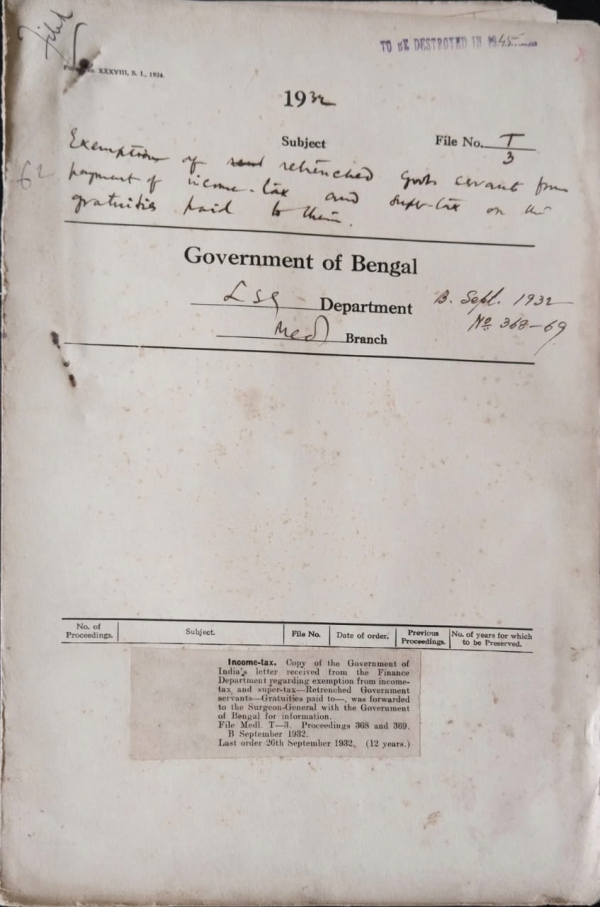 Filed
TO BE DESTROYED IN 1945
Form No. XXXVIII, S. I., 1924.
1932
Subject
File No. T/3
Exemption of retrenched Govt servant from
payment of income-tax and super-tax on the
gratuities paid to them.
62
Government of Bengal
LSG Department
B. Sept. 1932
Medl Branch
No 368-69
No. of Proceedings. Subject. File No. Date of order. Previous Proceedings. No. of years for which to be Preserved.
Income-tax. Copy of the Government of
India's letter received from the Finance
Department regarding exemption from income-
tax and super-tax—Retrenched Government
servants—Gratuities paid to—, was forwarded
to the Surgeon-General with the Government
of Bengal for information.
File Medl. T—3. Proceedings 368 and 369.
B September 1932.
Last order 26th September 1932. (12 years.)